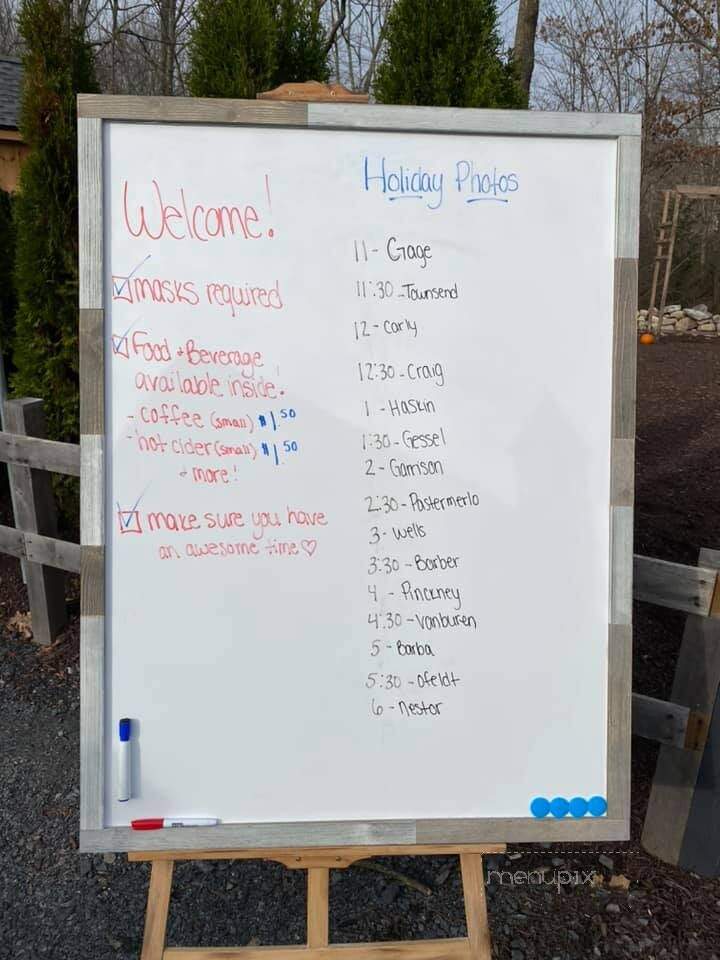 Welcome!
masks required
Food + Beverage
available inside!
- coffee (small) $1.50
- hot cider (small) $1.50
+ more!
make sure you have
an awesome time ♡
Holiday Photos
11 - Gage
11:30 - Townsend
12 - Carly
12:30 - Craig
1 - Haskin
1:30 - Gessel
2 - Garrison
2:30 - Pastermerlo
3 - Wells
3:30 - Barber
4 - Pinckney
4:30 - Vanburen
5 - Barba
5:30 - Ofeldt
6 - Nestor
menupix